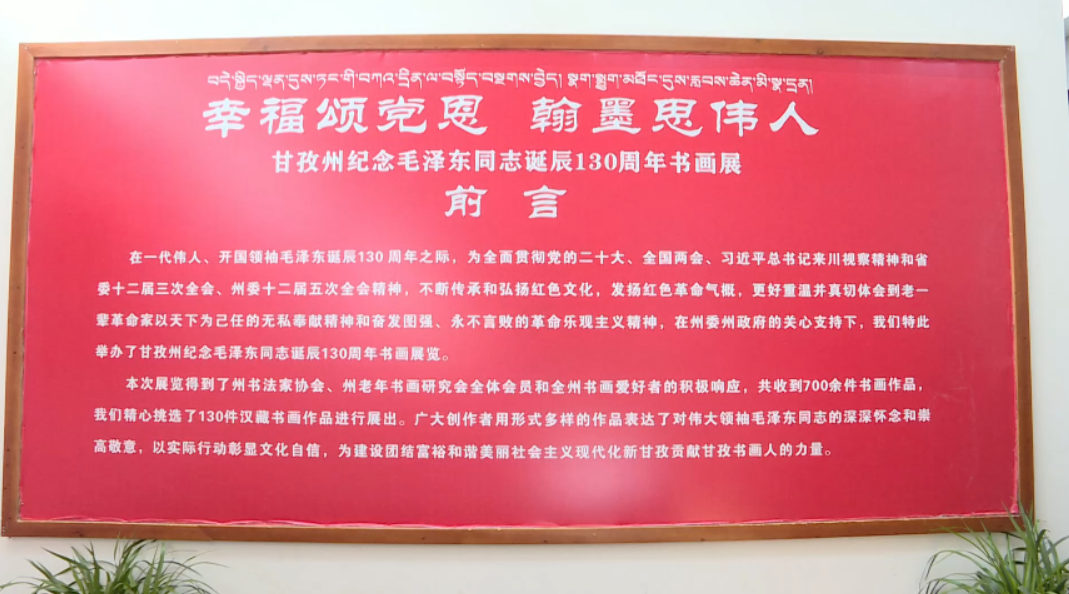 བདེ་སྐྱིད་ལྡན་དུས་ཏང་གི་བཀའ་དྲིན་ལ་བསྟོད་བསྔགས་བྱེད། སྣག་སྨྱུག་མཐོང་དུས་རླབས་ཆེན་མི་སྣ་དྲན།
幸福颂党恩 翰墨思伟人
甘孜州纪念毛泽东同志诞辰130周年书画展
前 言
在一代伟人、开国领袖毛泽东诞辰130 周年之际，为全面贯彻党的二十大、全国两会、习近平总书记来川视察精神和省
委十二届三次全会、州委十二届五次全会精神，不断传承和弘扬红色文化，发扬红色革命气概，更好重温并真切体会到老一
辈革命家以天下为己任的无私奉献精神和奋发图强、永不言败的革命乐观主义精神，在州委州政府的关心支持下，我们特此
举办了甘孜州纪念毛泽东同志诞辰130周年书画展览。
本次展览得到了州书法家协会、州老年书画研究会全体会员和全州书画爱好者的积极响应，共收到700余件书画作品，
我们精心挑选了130件汉藏书画作品进行展出。广大创作者用形式多样的作品表达了对伟大领袖毛泽东同志的深深怀念和崇
高敬意，以实际行动彰显文化自信，为建设团结富裕和谐美丽社会主义现代化新甘孜贡献甘孜书画人的力量。